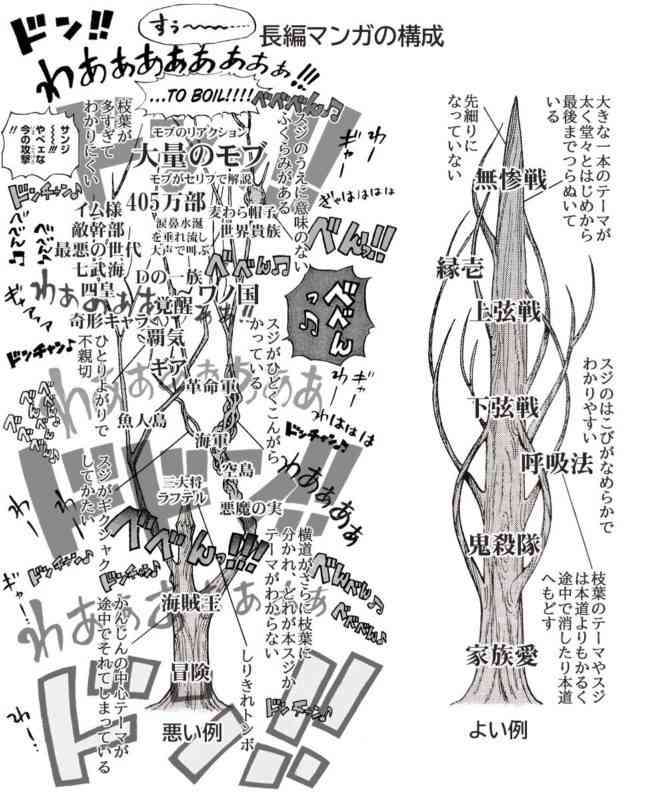 ドン!!
すぅ〜〜〜〜…
長編マンガの構成
わあぁあぁあぁぁぁ!!!
...TO BOIL!!!!
べべべん♪
サンジ
〜〜〜!!
やべェな
今の攻撃
!!
枝葉が
多すぎて
わかりにくい
モブのリアクション
大量のモブ
モブがセリフで解説
405万部
涙鼻水涎
を垂れ流し
大声で叫ぶ
麦わら帽子
世界貴族
スジのうえに意味のない
ふくらみがある
ぎゃー
わー
ぎゃはははは
ドンチャン♪
べべべん♪
べんっ!!
イム様
敵幹部
最悪の世代
七武海
四皇
奇形キャラ
Dの一族
覚醒
ワノ国
覇気
ギア
革命軍
ぎゃアアア
ドンチャン♪
べべべん♪
べべべん♪
ひとりよがりで
不親切
スジがひどくこんがら
かっている
魚人島
海軍
空島
三大将
ラフテル
悪魔の実
わははは
ドンチャン♪
わあぁぁぁぁ
ドドン!!
スジがギクシャク
してかたい
べべべんっ!!!
横道がさらに枝葉に
分かれ、どれが本スジか
テーマがわからない
べんべん♪
べべべん♪
海賊王
冒険
かんじんの中心テーマが
途中でそれてしまっている
しりきれトンボ
ドンチャン♪
ドン!!
悪い例
先細りに
なっていない
大きな一本のテーマが
太く堂々とはじめから
最後までつらぬいて
いる
無惨戦
縁壱
上弦戦
下弦戦
スジのはこびがなめらかで
わかりやすい
呼吸法
鬼殺隊
家族愛
枝葉のテーマやスジ
は本道よりもかるく
途中で消したり本道
へもどす
よい例